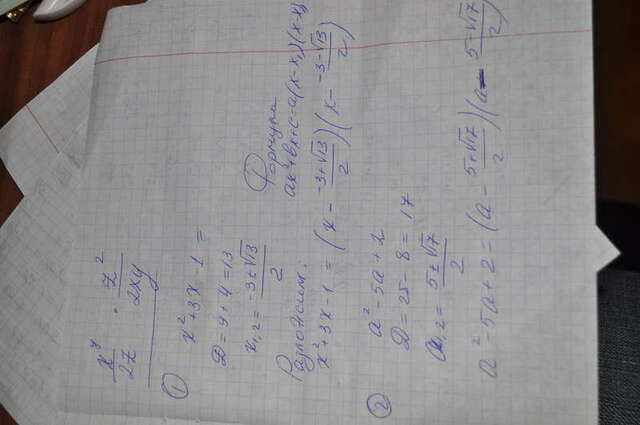 x⁷/2z · z²/2xy
① x² + 3x - 1 =
D = 9 + 4 = 13
x₁,₂ = -3 ± √13 / 2
Формула
ax² + bx + c - a(x - x₁)(x - x₂)
Разложим:
x² + 3x - 1 = (x - -3 + √13 / 2)(x - -3 - √13 / 2)
② a² - 5a + 2
D = 25 - 8 = 17
a₁,₂ = 5 ± √17 / 2
a² - 5a + 2 = (a - 5 + √17 / 2)(a - 5 - √17 / 2)